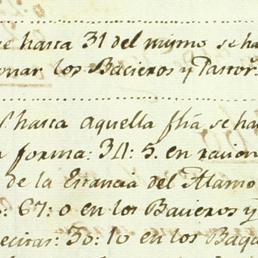 e hasta 31 del mismo se ha
onar los Bacieros y Pastor.
hasta aquella fha se ha
forma: 34: 5. en racion
de la Estancia del Alamo
: 67: 0 en los Bacieros y
ecitas: 36: 10 en los Baqu